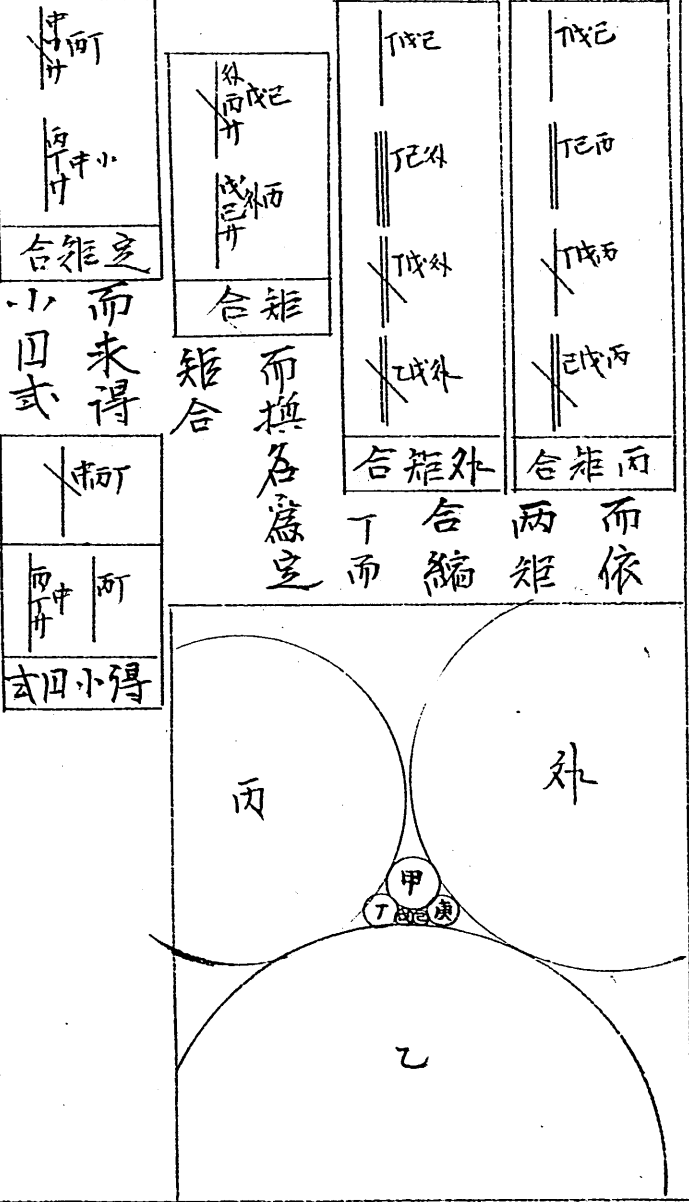 丁戊己
丁己丙
丁戊丙
己戊丙
合矩丙
丁戊己
丁己外
丁戊外
己戊外
合矩外
而依
両矩
合縮
丁而
外丙廾
戊己
戊己廾
外丙
合矩
而換名為定
矩合
丙丁
丙丁廾
中小
合矩定
而求得
小円式
中丙丁
丙丁廾
中
丙丁
式円小得
丙
外
甲
丁
戊己
庚
乙